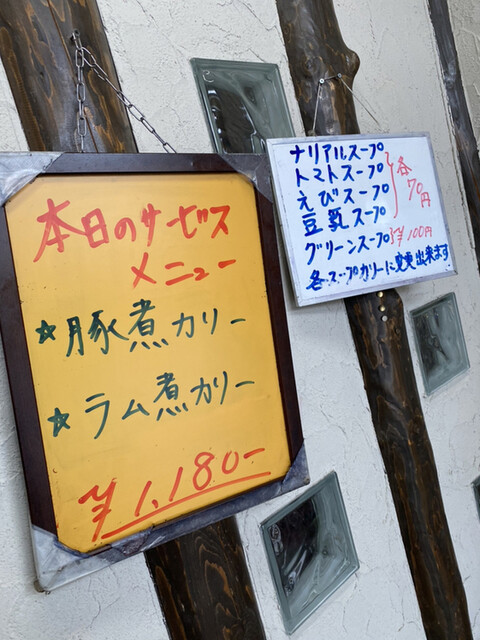 本日のサービス
メニュー
☆豚煮カリー
☆ラム煮カリー
¥1,180-
ナリアルスープ
トマトスープ
えびスープ
豆乳スープ
各70円
グリーンスープ ¥100円
各スープカリーに変更出来ます